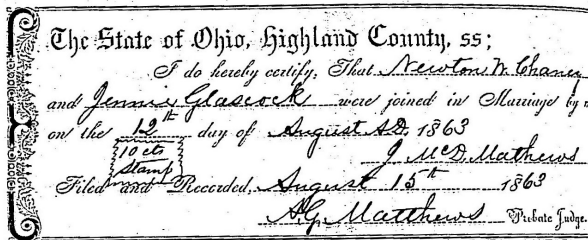 The State of Ohio, Highland County, ss;
I do hereby certify, That Newton W. Chaney
and Jennie Glascock were joined in Marriage by
on the 12th day of August A.D. 1863
10 cts
Stamp
J McD. Mathews
Filed and Recorded, August 15th 1863
A.G. Matthews Probate Judge.